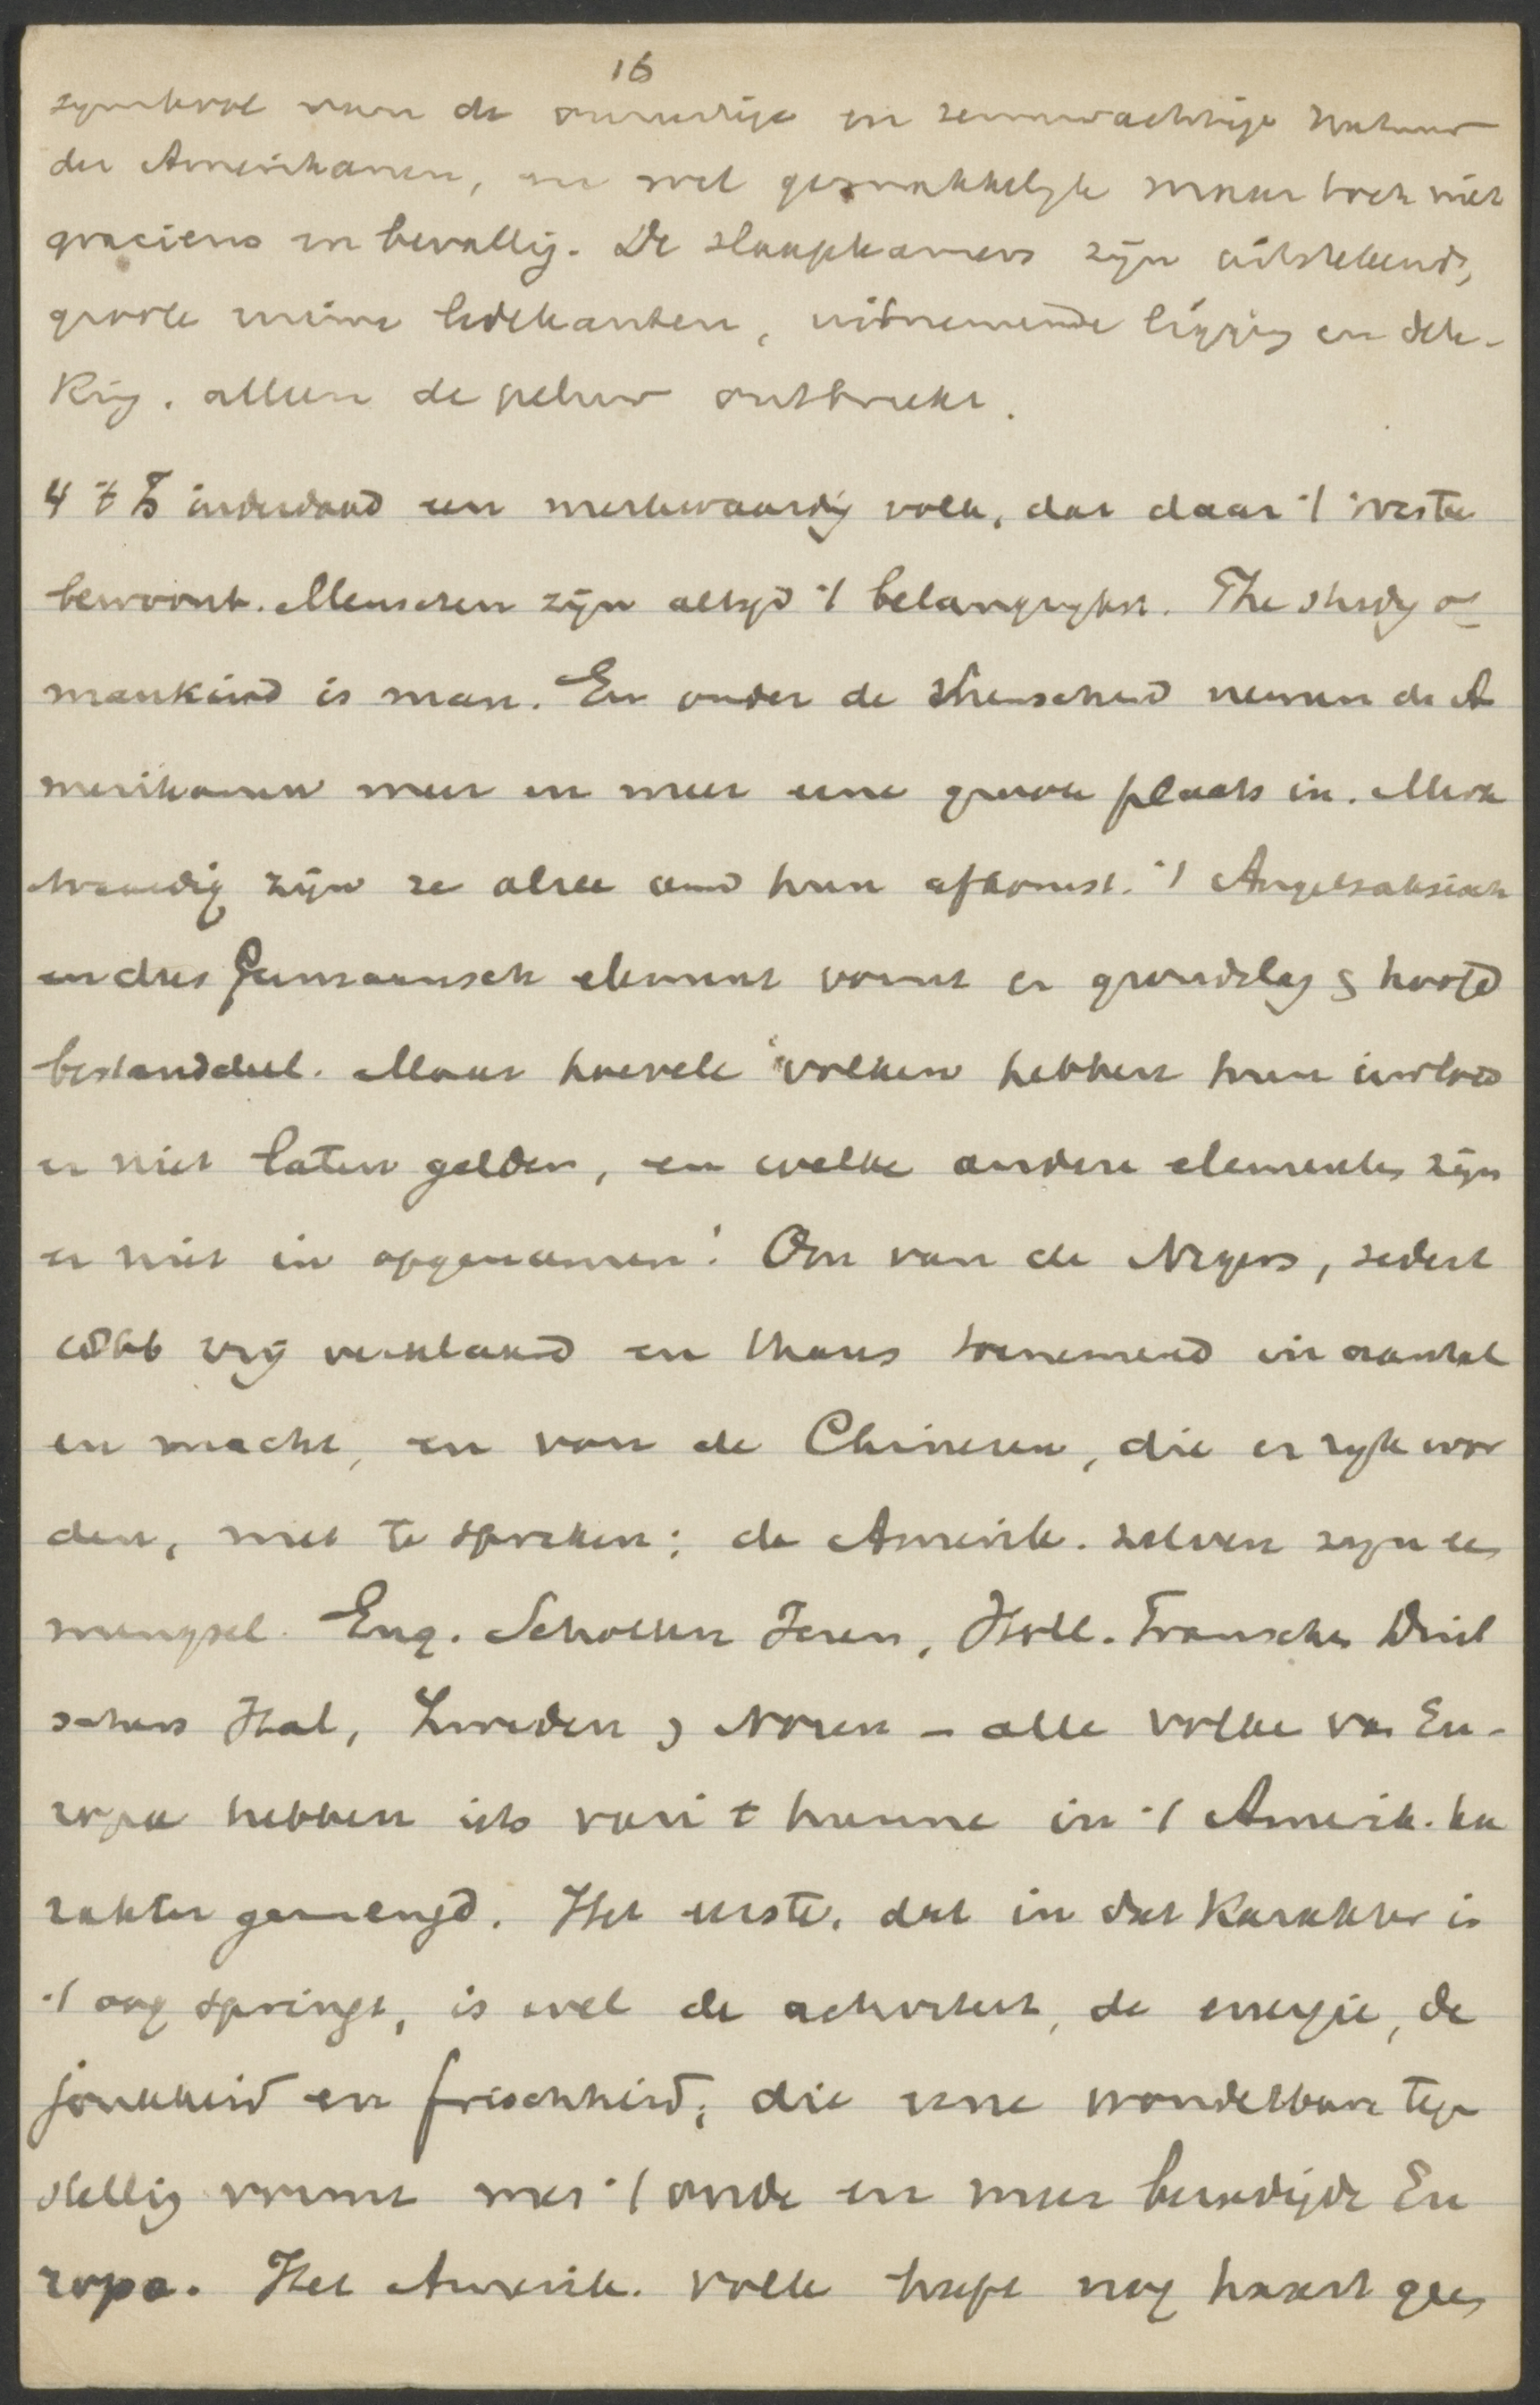 16
symbool van de onrustige en zenuwachtige natuur
der Amerikanen, en wel gemakkelijk maar toch niet
gracieus en bevallig. De slaapkamers zijn uitstekend,
groote ruime ledekanten, uitnemende ligging en dek-
king. alleen de peluw ontbreekt.
4 't Is inderdaad een merkwaardig volk, dat daar 't Westen
bewoont. Menschen zijn altijd 't belangrijkst. The study of
mankind is man. En onder de menschheid nemen de A
merikanen meer en meer eene groote plaats in. Merk
waardig zijn ze alree om hun afkomst. 't Angelsaksisch
en dus Germaansch element vormt er grondslag & hoofd
bestanddeel. Maar hoevele volken hebben hun invloed
er niet laten gelden, en welke andere elementen zijn
er niet in opgenomen! Om van de Negers, sedert
1866 vrij verklaard en thans toenemend in aantal
en macht, en van de Chineezen, die er rijk wor
den, niet te spreken; de Amerik. zelven zijn een
mengsel. Eng. Schotten Ieren, Holl. Franschen Duit
schers Ital, Zweden & Noren - alle volke van Eu-
ropa hebben iets van 't hunne in 't Amerik. ka
rakter gemengd. Het eerste, dat in dat karakter in
't oog springt, is wel de activiteit, de energie, de
jonkheid en frischheid, die eene wonderbare tegen
stelling vormt met 't oude en meer bezadigde Eu
ropa. Het Amerik. volk heeft nog haast geen